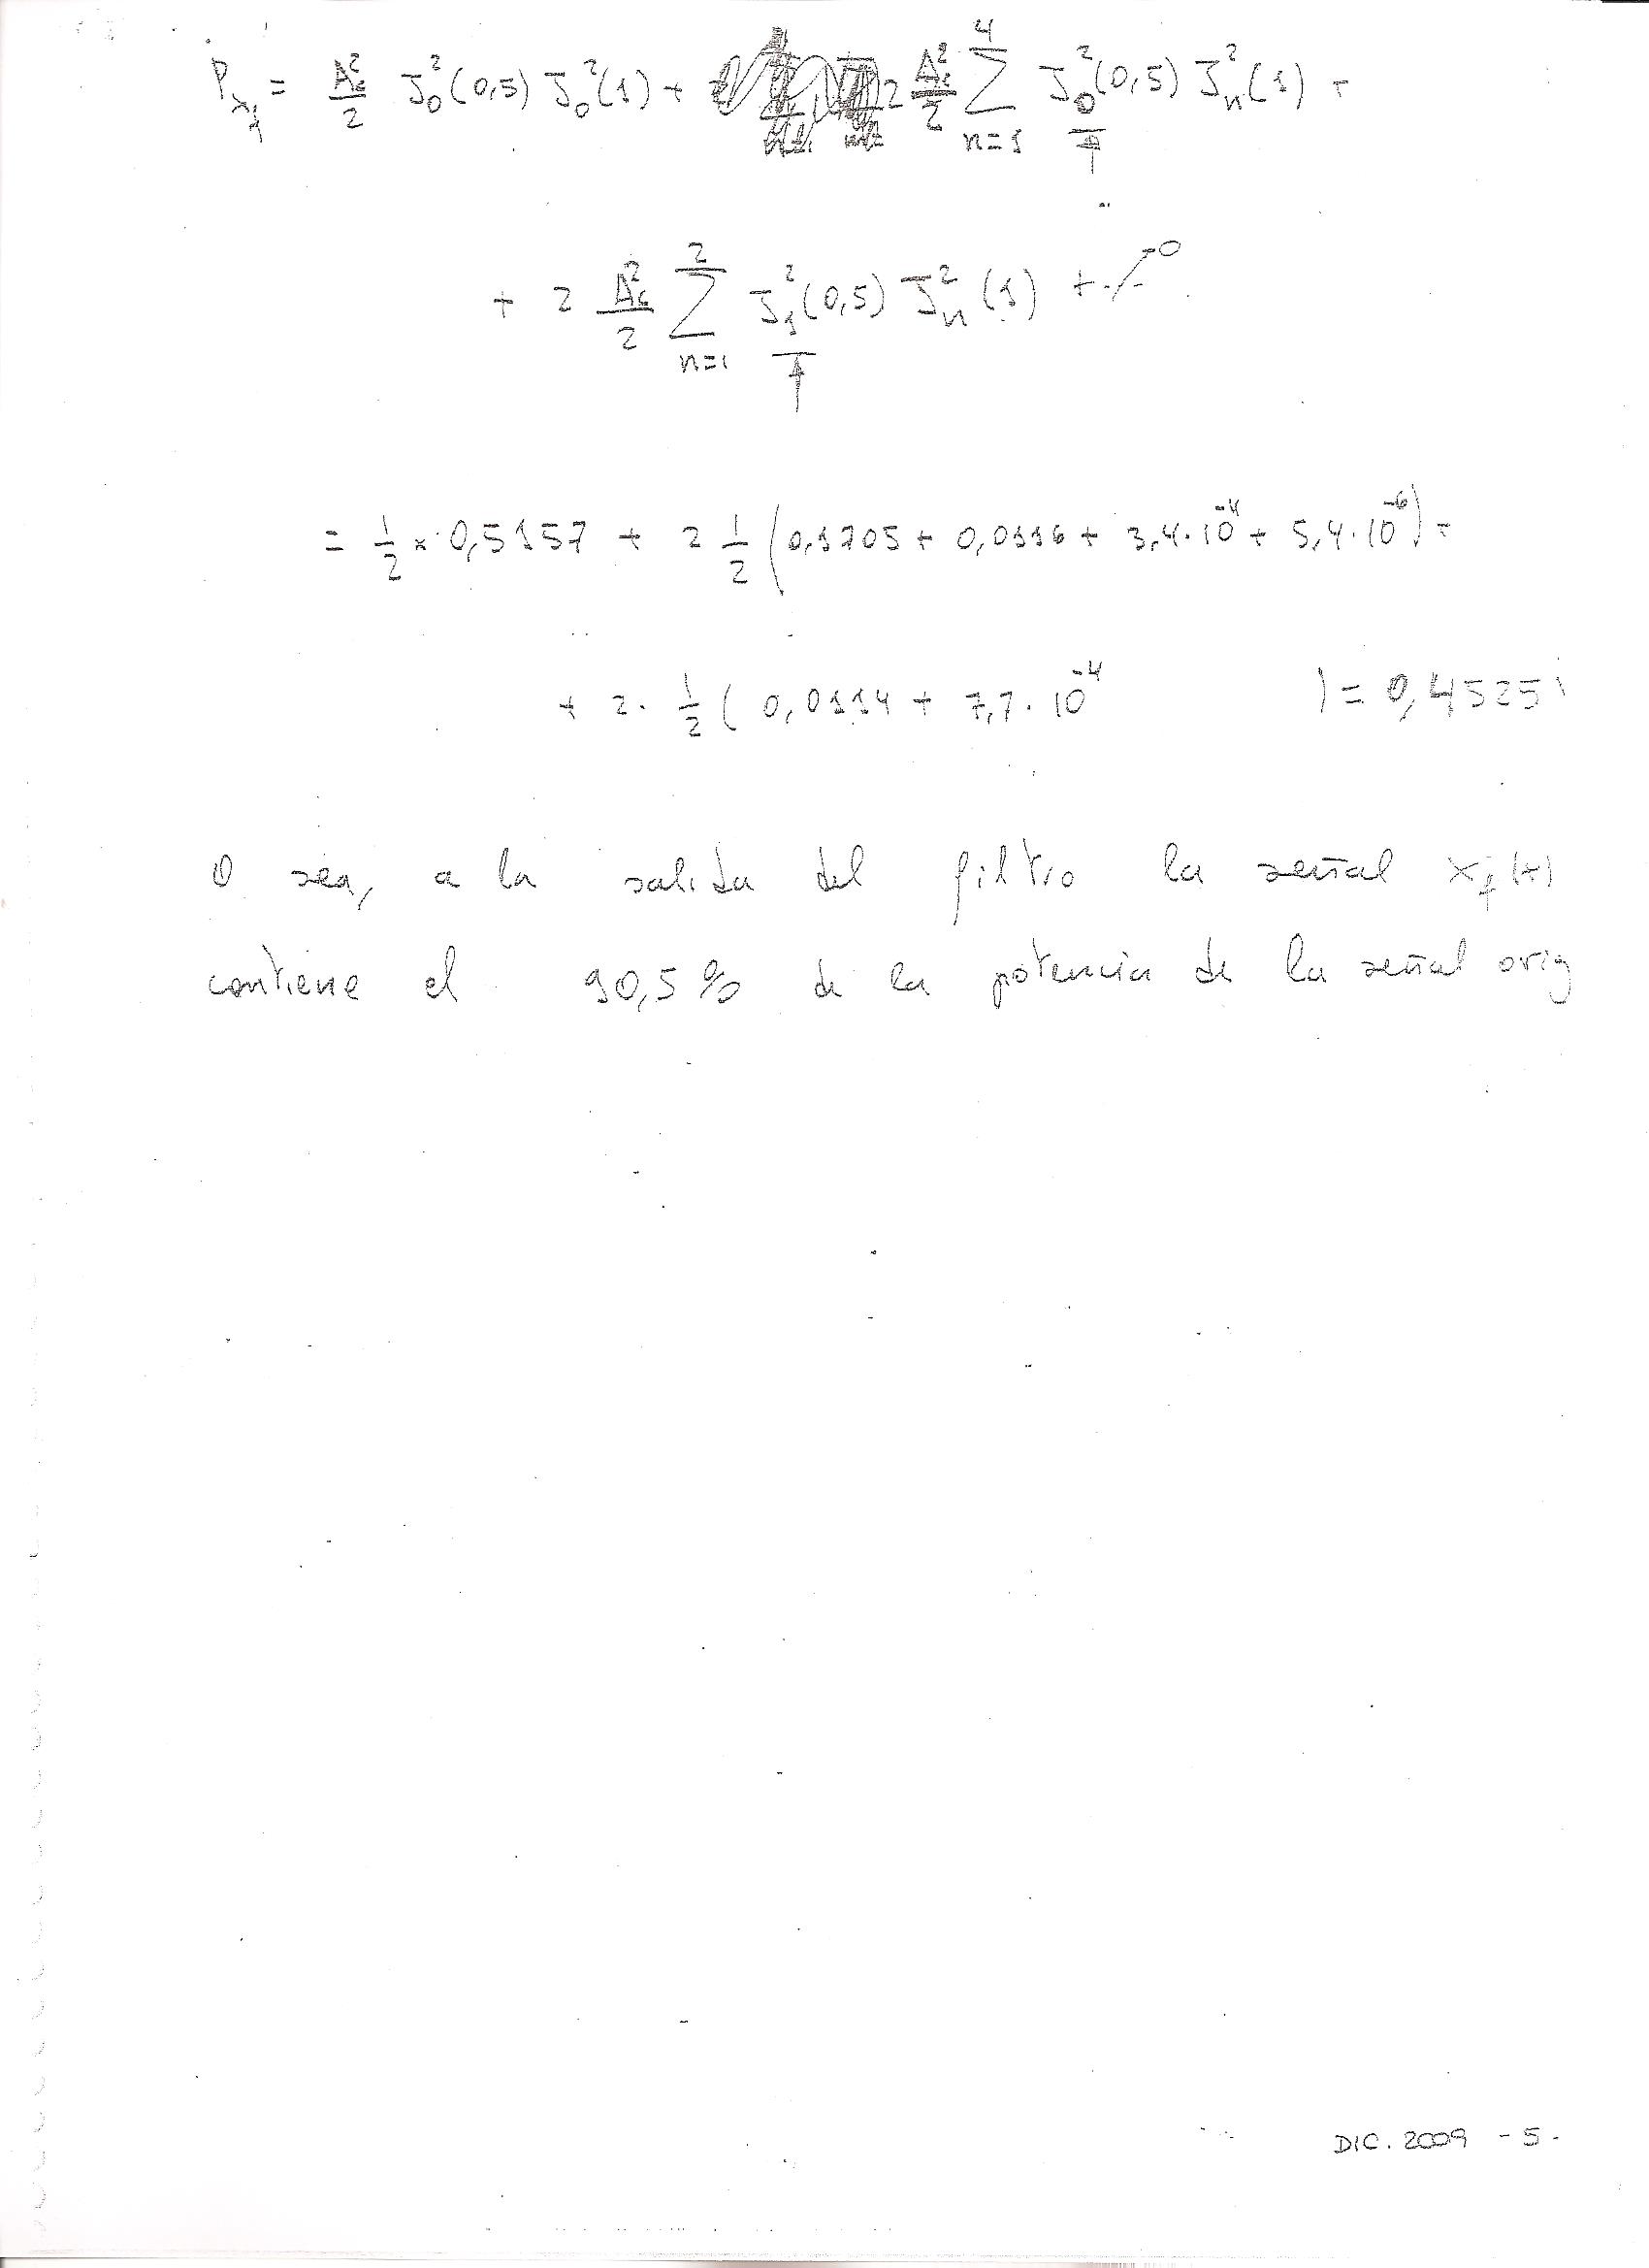 P_{x_f} = A_c²/2 J_0²(0,5) J_0²(1) + 2 A_c²/2 Σ_{n=1}^{4} J_0²(0,5) J_n²(1) +
+ 2 A_c²/2 Σ_{n=1}^{2} J_1²(0,5) J_n²(1) + ... → 0
= 1/2 × 0,5157 + 2 1/2 (0,1705 + 0,0116 + 3,4·10^{-4} + 5,4·10^{-6}) =
+ 2· 1/2 ( 0,0114 + 7,7·10^{-4} ) = 0,4525
O sea, a la salida del filtro la señal x_f(t)
contiene el 90,5% de la potencia de la señal orig
DIC. 2009 -5-